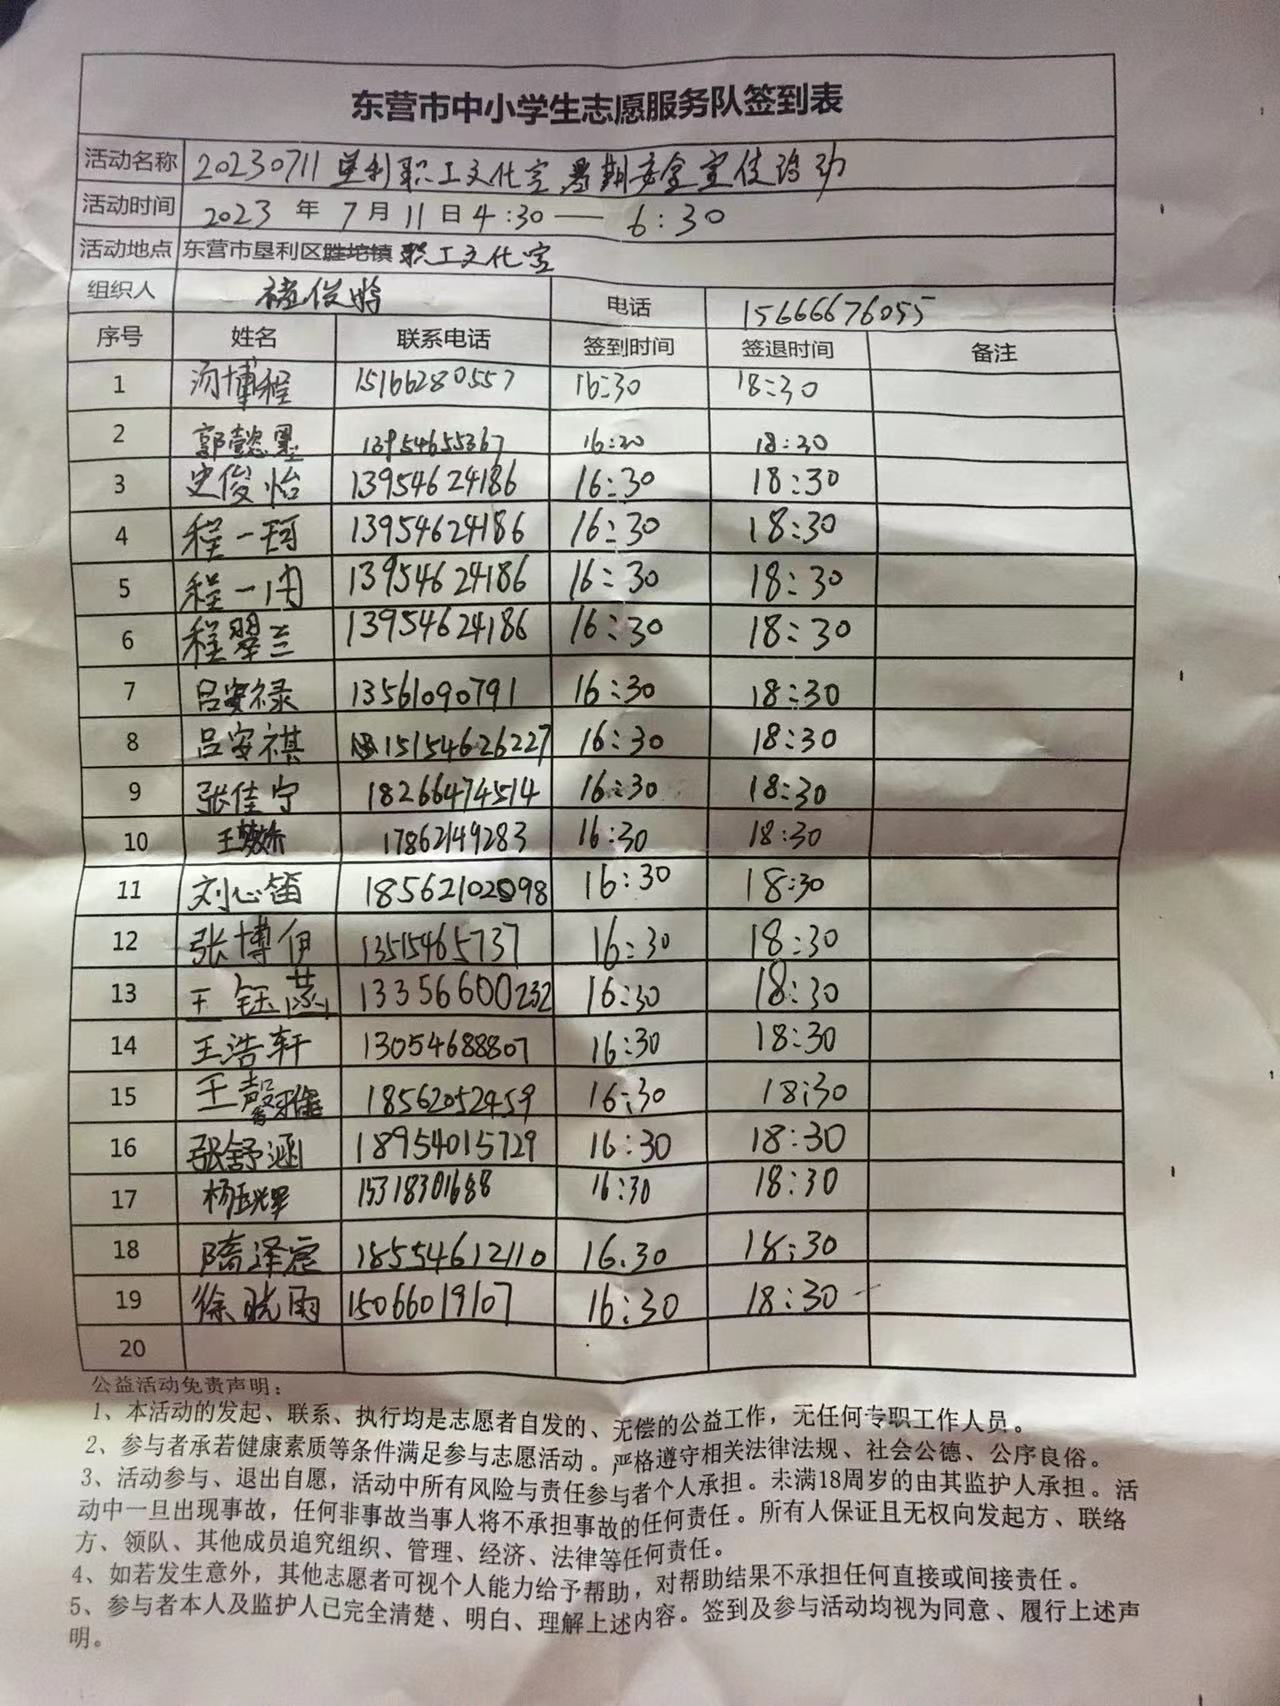 东营市中小学生志愿服务队签到表
活动名称 20230711垦利职工文化宫暑期安全宣传活动
活动时间 2023 年 7 月 11 日 4:30 — 6:30
活动地点 东营市垦利区胜坨镇 职工文化宫
组织人 褚俊鹏 电话 15666676055
序号 姓名 联系电话 签到时间 签退时间 备注
1 汤博程 15166280557 16:30 18:30
2 郭懿墨 13954655367 16:30 18:30
3 史俊怡 13954624186 16:30 18:30
4 程一珂 13954624186 16:30 18:30
5 程一冉 13954624186 16:30 18:30
6 程翠兰 13954624186 16:30 18:30
7 吕安禄 13561090791 16:30 18:30
8 吕安祺 15154626227 16:30 18:30
9 张佳宁 18266474514 16:30 18:30
10 王 17862149283 16:30 18:30
11 刘心笛 18562102898 16:30 18:30
12 张博伊 13515465737 16:30 18:30
13 王钰蕊 13356600232 16:30 18:30
14 王浩轩 13054688807 16:30 18:30
15 王馨雅 18562052459 16:30 18:30
16 张舒涵 18954015729 16:30 18:30
17 杨 15318301688 16:30 18:30
18 隋泽宸 18554612110 16.30 18:30
19 徐晓雨 15066019107 16:30 18:30
20
公益活动免责声明：
1、本活动的发起、联系、执行均是志愿者自发的、无偿的公益工作，无任何专职工作人员。
2、参与者承若健康素质等条件满足参与志愿活动。严格遵守相关法律法规、社会公德、公序良俗。
3、活动参与、退出自愿，活动中所有风险与责任参与者个人承担。未满18周岁的由其监护人承担。活
动中一旦出现事故，任何非事故当事人将不承担事故的任何责任。所有人保证且无权向发起方、联络
方、领队、其他成员追究组织、管理、经济、法律等任何责任。
4、如若发生意外，其他志愿者可视个人能力给予帮助，对帮助结果不承担任何直接或间接责任。
5、参与者本人及监护人已完全清楚、明白、理解上述内容。签到及参与活动均视为同意、履行上述声
明。